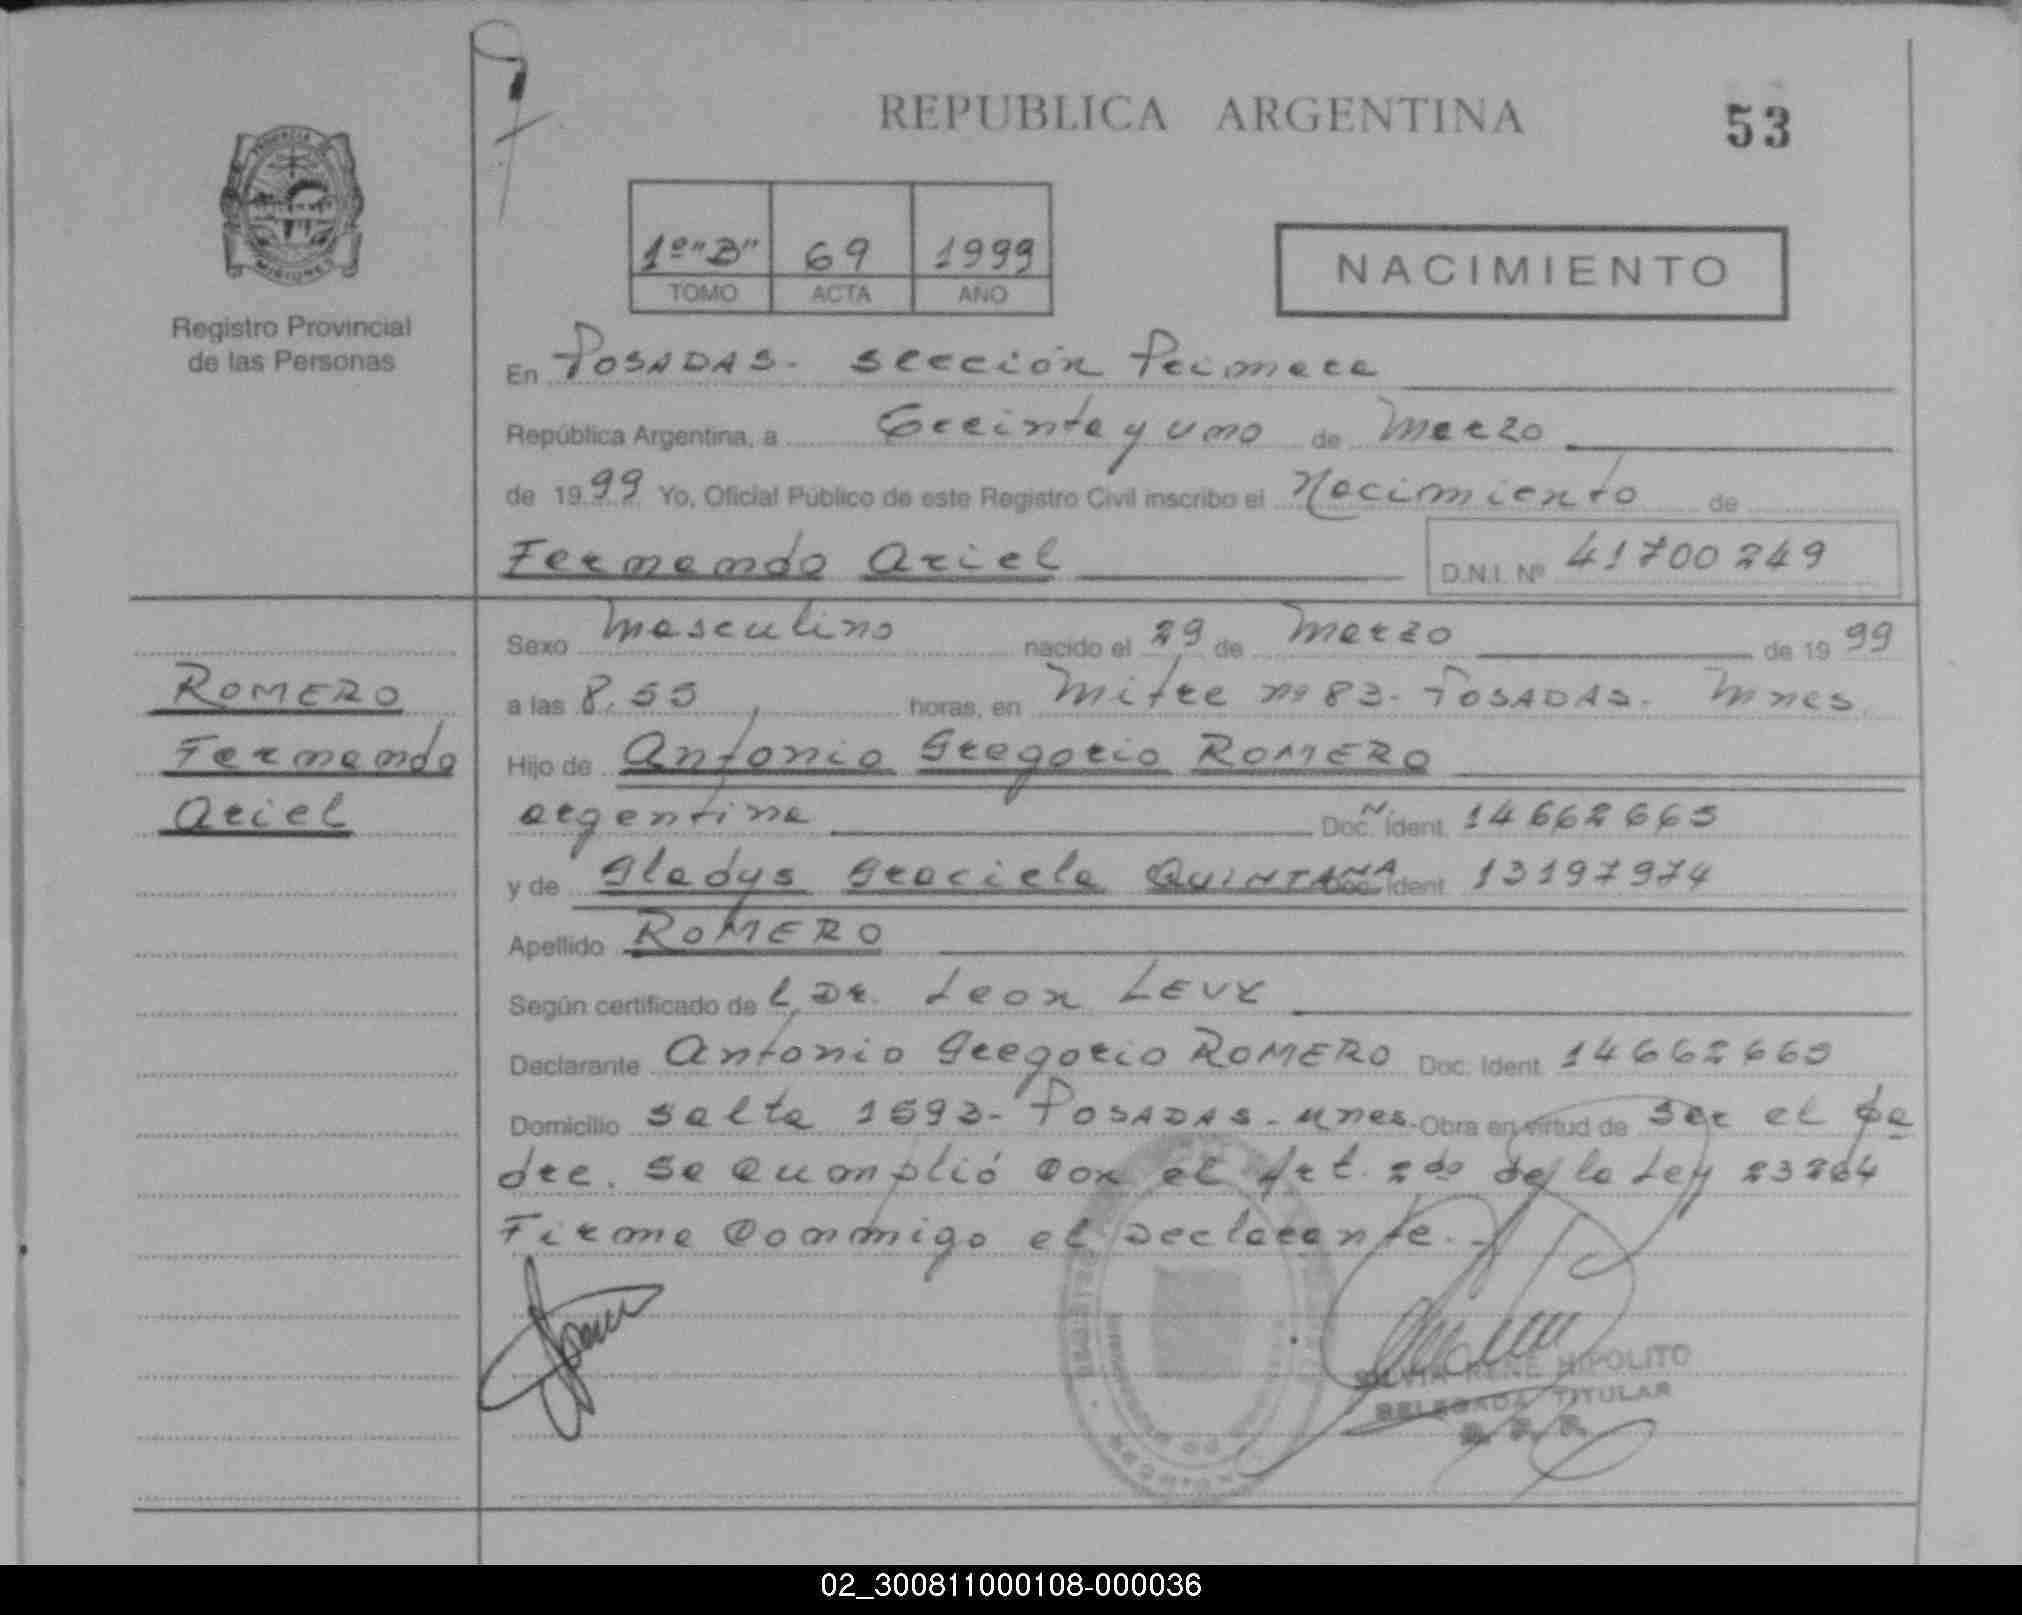 REPUBLICA ARGENTINA
53
PROVINCIA
MISIONES
Registro Provincial
de las Personas
1º "B" 69 1999
TOMO ACTA AÑO
NACIMIENTO
En POSADAS. Sección Primera
República Argentina, a treinta y uno de Marzo
de 1999 Yo, Oficial Público de este Registro Civil inscribo el Nacimiento de
Fernando Ariel
D.N.I. Nº 41700249
Sexo Masculino nacido el 29 de Marzo de 19 99
a las 8,55 horas, en Mitre nº 83- POSADAS. Mnes.
Hijo de Antonio Gregorio ROMERO
argentina Doc. Ident. 14662665
y de Gladys Graciela QUINTANA Doc. Ident 13197974
Apellido ROMERO
Según certificado de l, Dr. Leon LEVY
Declarante Antonio Gregorio ROMERO Doc. Ident. 14662665
Domicilio Salta 1593- POSADAS- Mnes. Obra en virtud de ser el pa
dre. Se cumplió con el Art. 2do de la Ley 23264
Firma conmigo el Declarante.-
ROMERO
Fernando
Ariel
SILVIA RENE HIPOLITO
DELEGADA TITULAR
02_300811000108-000036